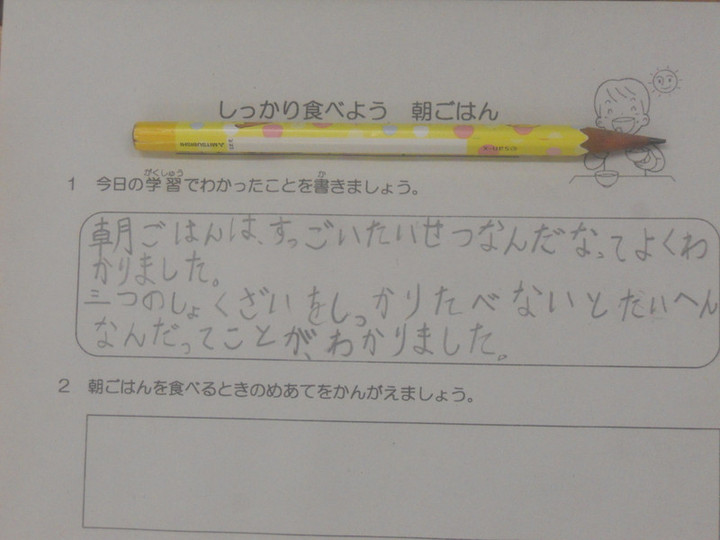 しっかり食べよう 朝ごはん
1 今日の学習でわかったことを書きましょう。
朝ごはんは、すっごいたいせつなんだなってよくわ
かりました。
三つのしょくざいをしっかりたべないとたいへん
なんだってことが、わかりました。
2 朝ごはんを食べるときのめあてをかんがえましょう。